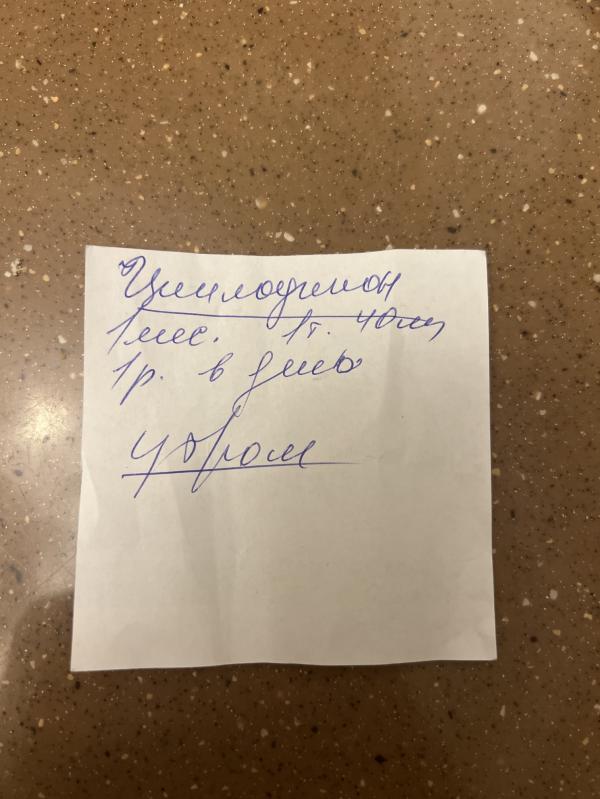 Циклодинон
1 мес. 1т. 40мг
1р. в день
утром